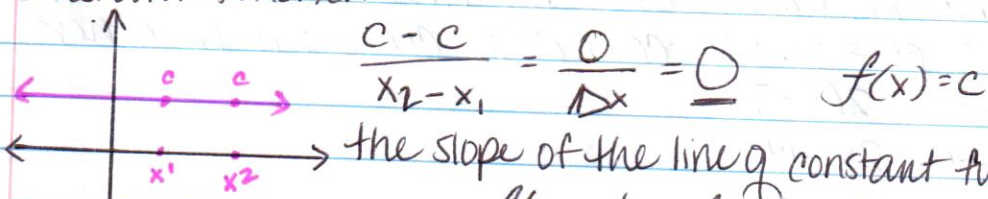 c c
x¹ x2
c - c / x₂ - x₁ = 0 / Δx = 0 f(x) = c
the slope of the line g constant